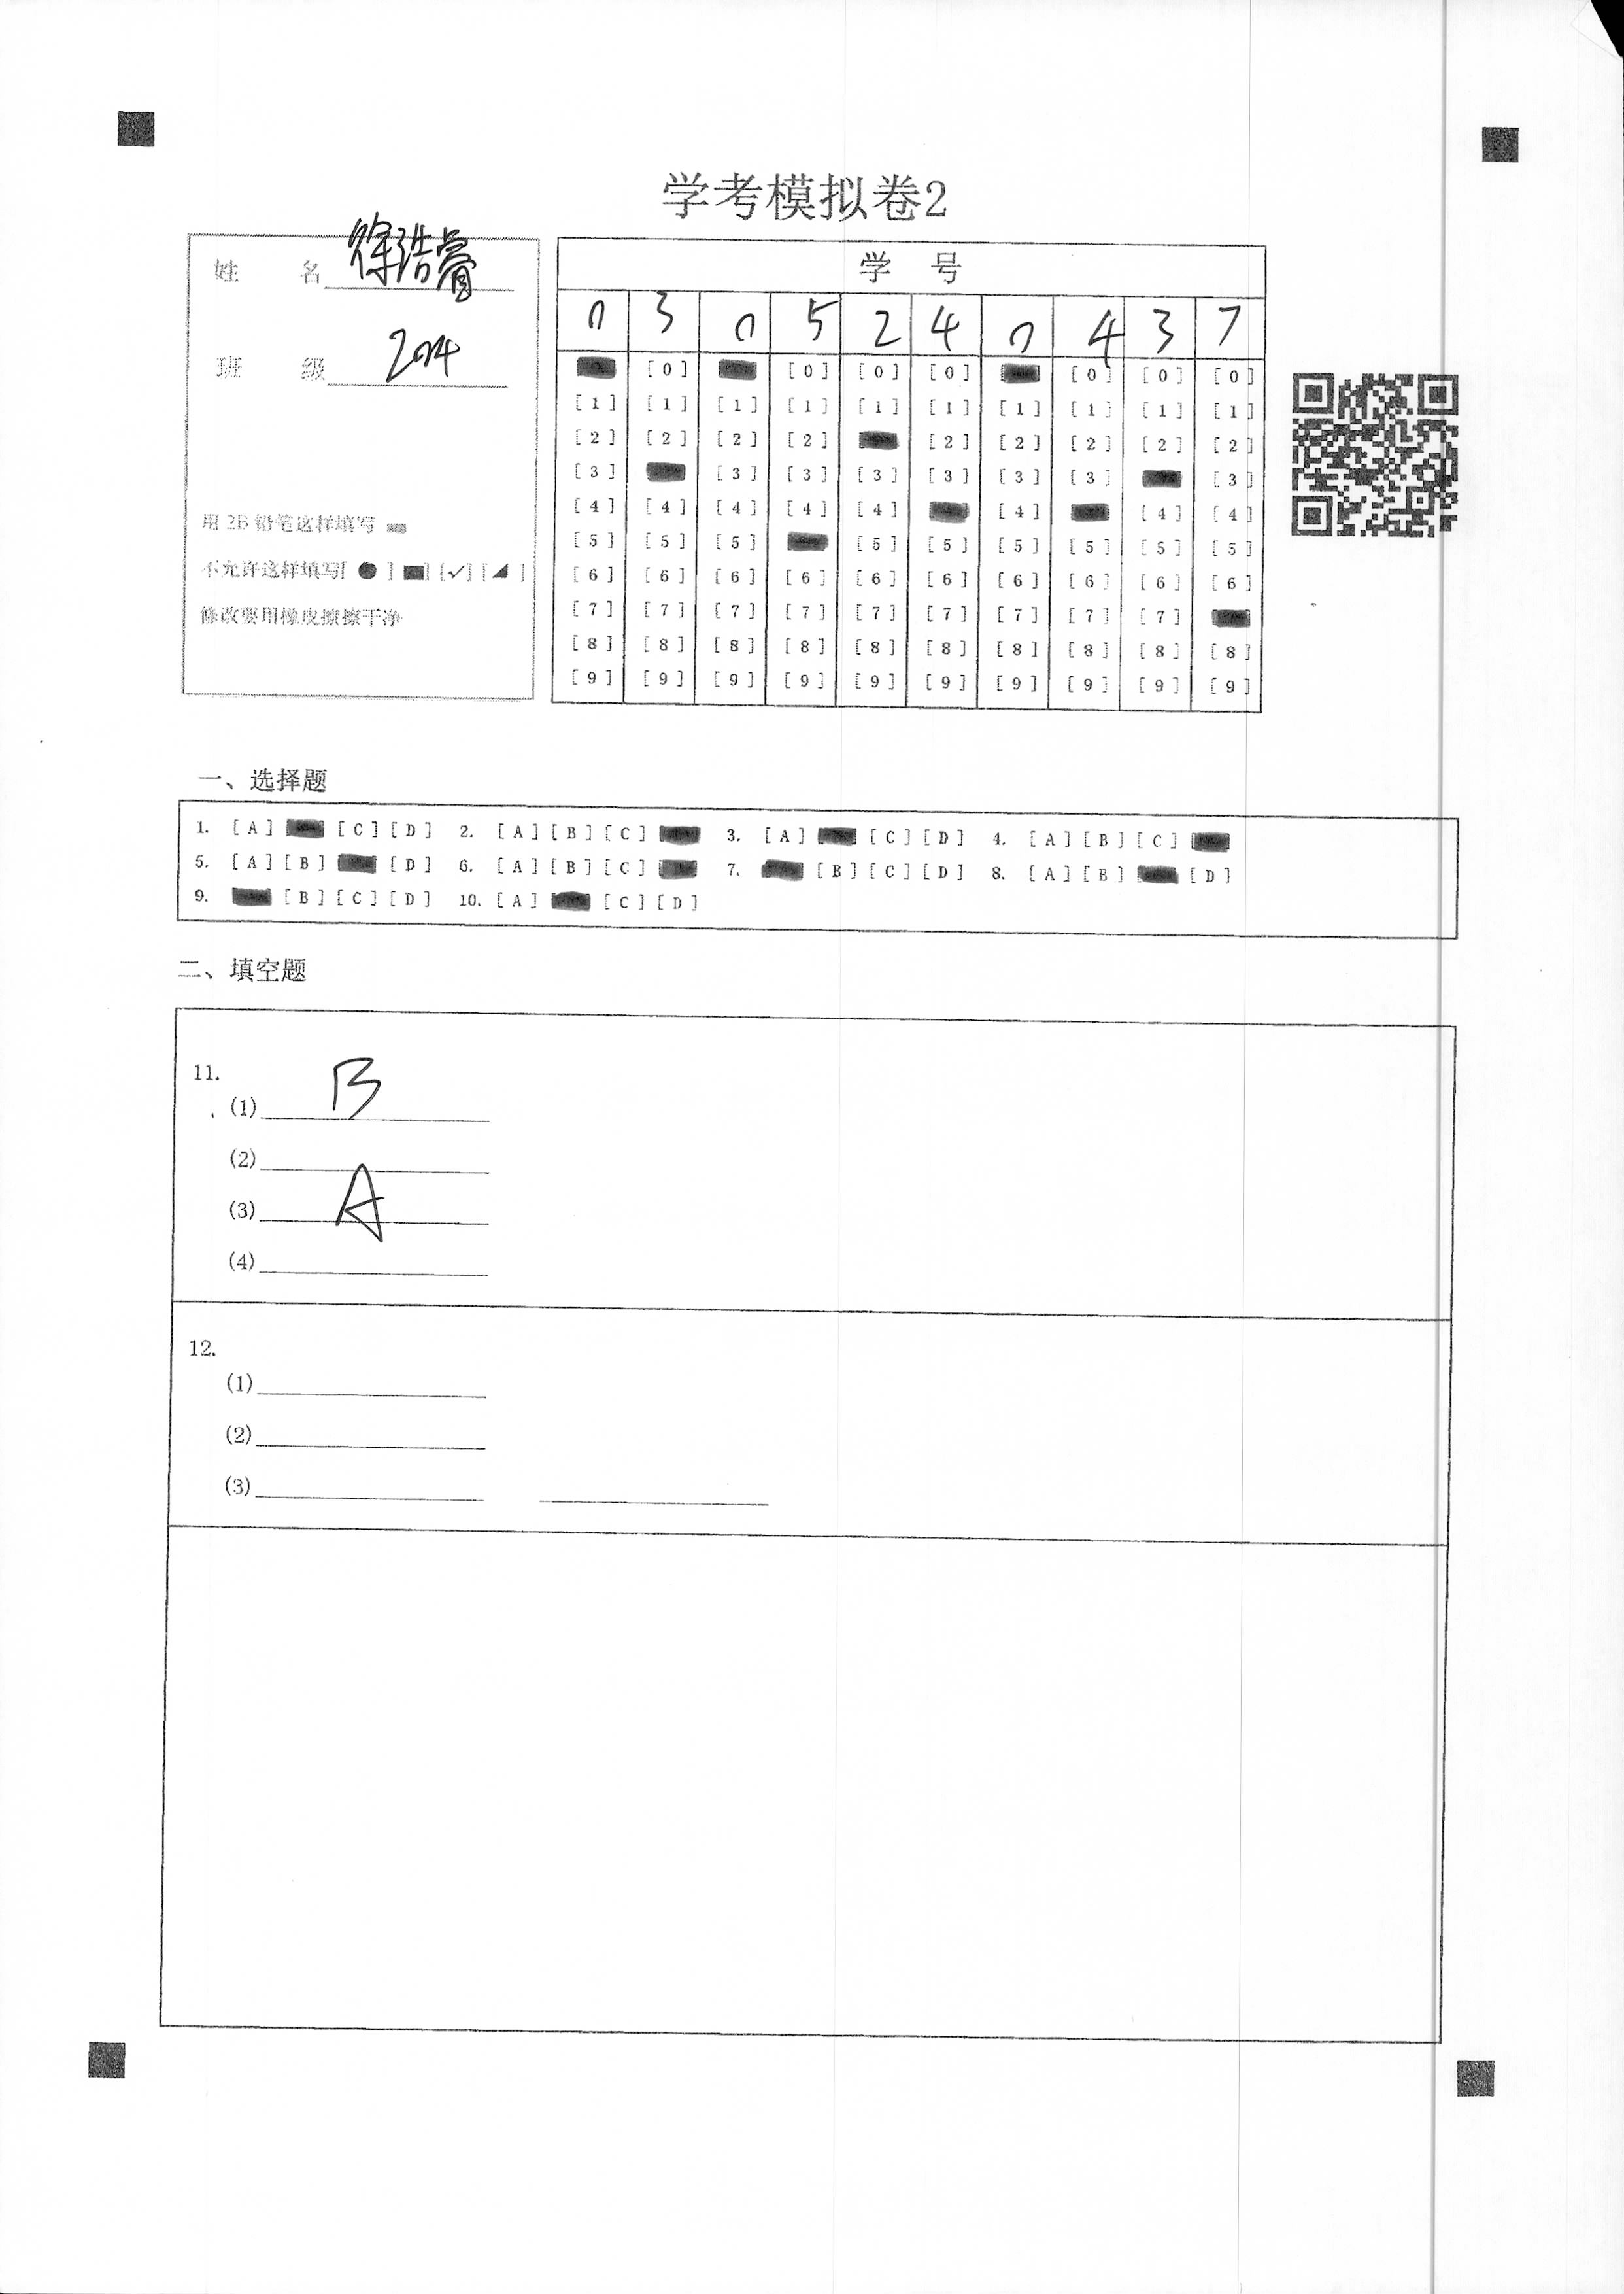 学考模拟卷2
姓 名 徐浩
班 级 204
用 2B 铅笔这样填写
不允许这样填写[ ● ] [■] [✓] [◢ ]
修改要用橡皮擦擦干净
学 号
0 3 0 5 2 4 0 4 3 7
[0] [0] [0] [0] [0] [0] [0]
[1] [1] [1] [1] [1] [1] [1] [1] [1] [1]
[2] [2] [2] [2] [2] [2] [2] [2] [2]
[3] [3] [3] [3] [3] [3] [3] [3]
[4] [4] [4] [4] [4] [4] [4] [4]
[5] [5] [5] [5] [5] [5] [5] [5] [5]
[6] [6] [6] [6] [6] [6] [6] [6] [6] [6]
[7] [7] [7] [7] [7] [7] [7] [7] [7]
[8] [8] [8] [8] [8] [8] [8] [8] [8] [8]
[9] [9] [9] [9] [9] [9] [9] [9] [9] [9]
一、选择题
1. [A] [C] [D] 2. [A] [B] [C] 3. [A] [C] [D] 4. [A] [B] [C]
5. [A] [B] [D] 6. [A] [B] [C] 7. [B] [C] [D] 8. [A] [B] [D]
9. [B] [C] [D] 10. [A] [C] [D]
二、填空题
11.
(1) B
(2)
(3) A
(4)
12.
(1)
(2)
(3)